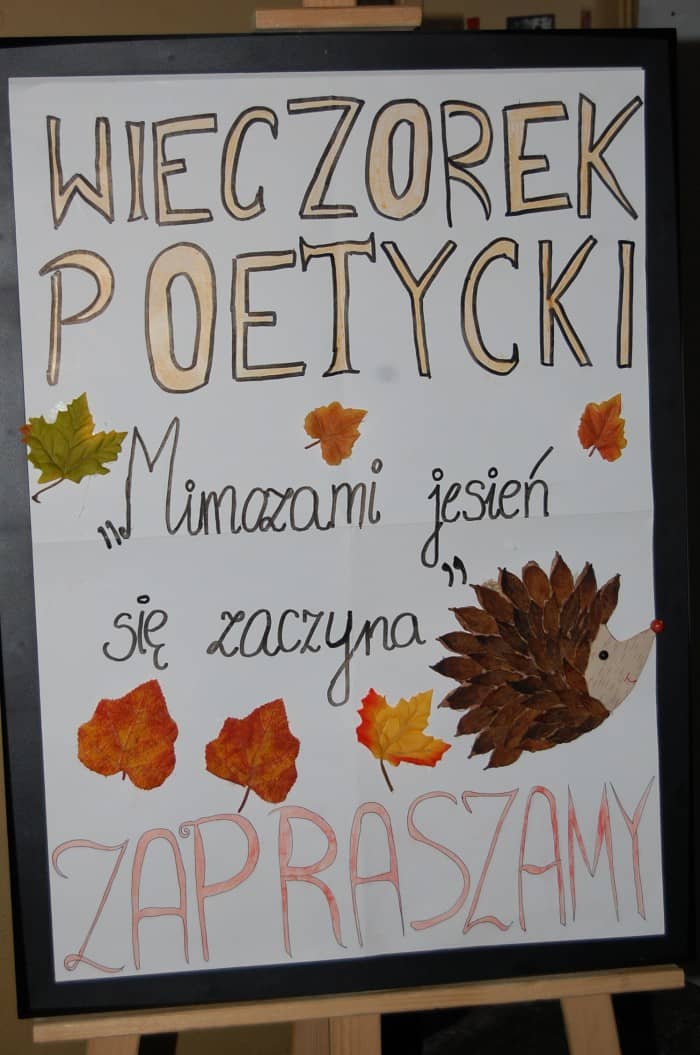 WIECZOREK
POETYCKI
„Mimozami jesień
się zaczyna”
ZAPRASZAMY